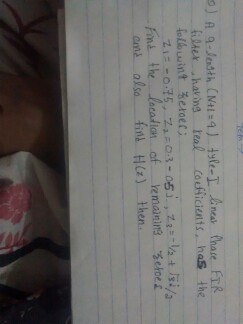 A 9-length (N+1 = 9) type-I linear Phase FIR
filter having real coefficients has the
following zeroes:
z₁ = -0.75, z₂ = 0.3 - 0.5j, z₃ = -1/2 + √3j/2
Find the location of remaining zeroes
and also find H(z) then.